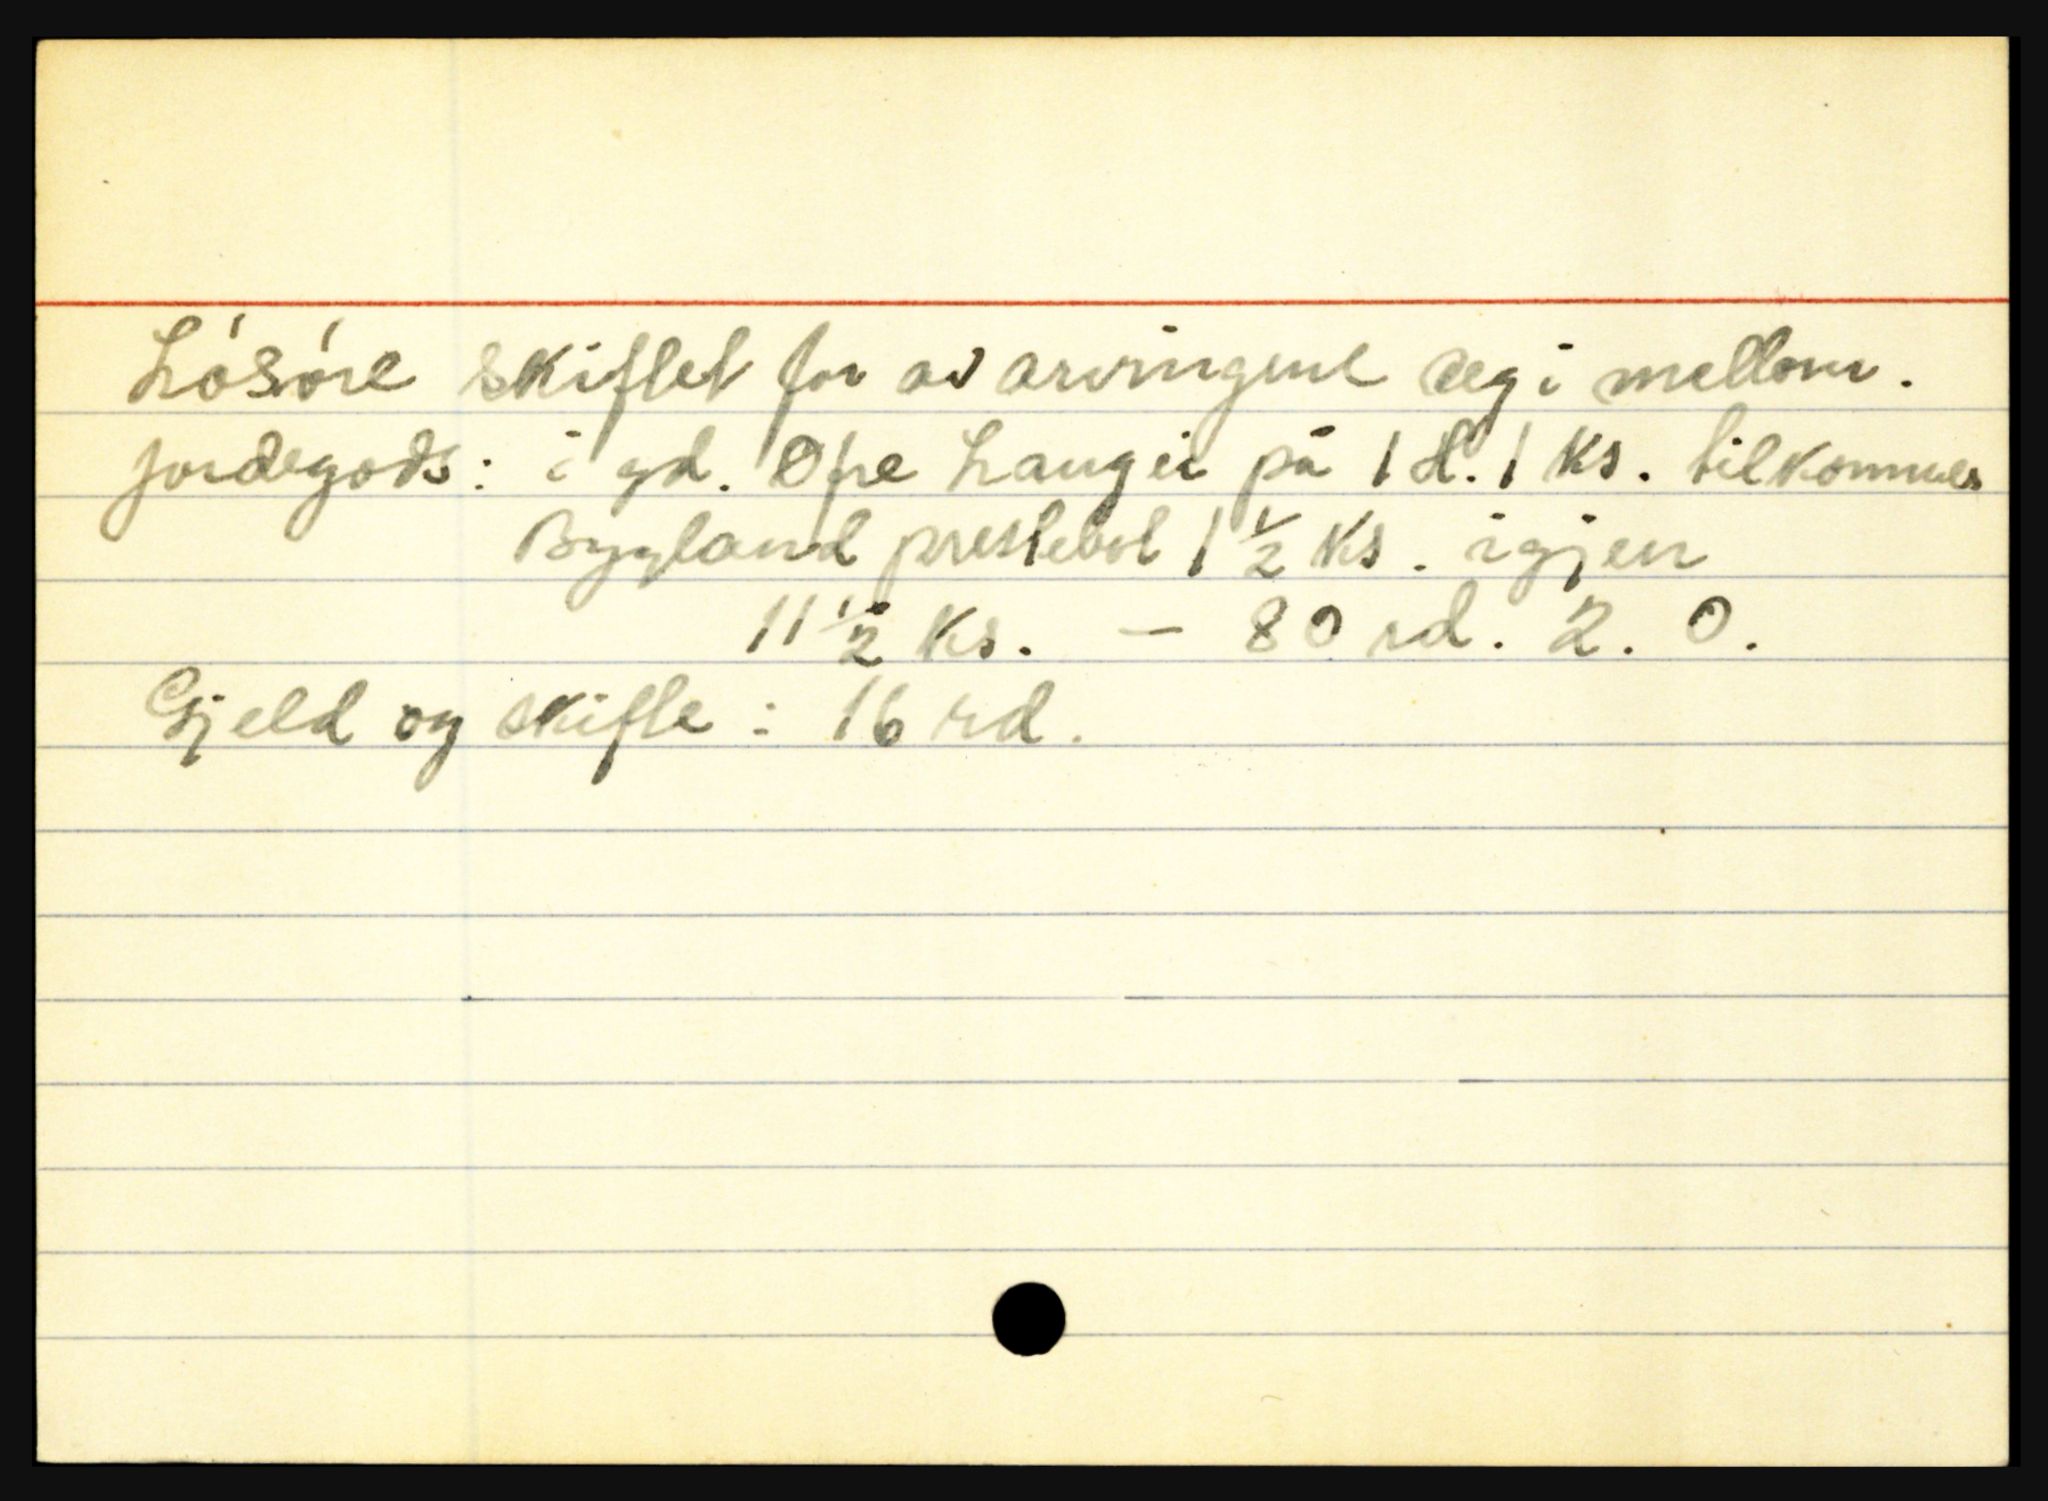 Lósóre skiftet for av arvingene seg i mellom.
Jordegods: i gd. Øfre Langei på 1 H. 1 ks. tilkommes
Bygland prestebol 1 1/2 ks. igjen
11 1/2 ks. — 80 rd. 2. 0.
Gjeld og skifte: 16 rd.